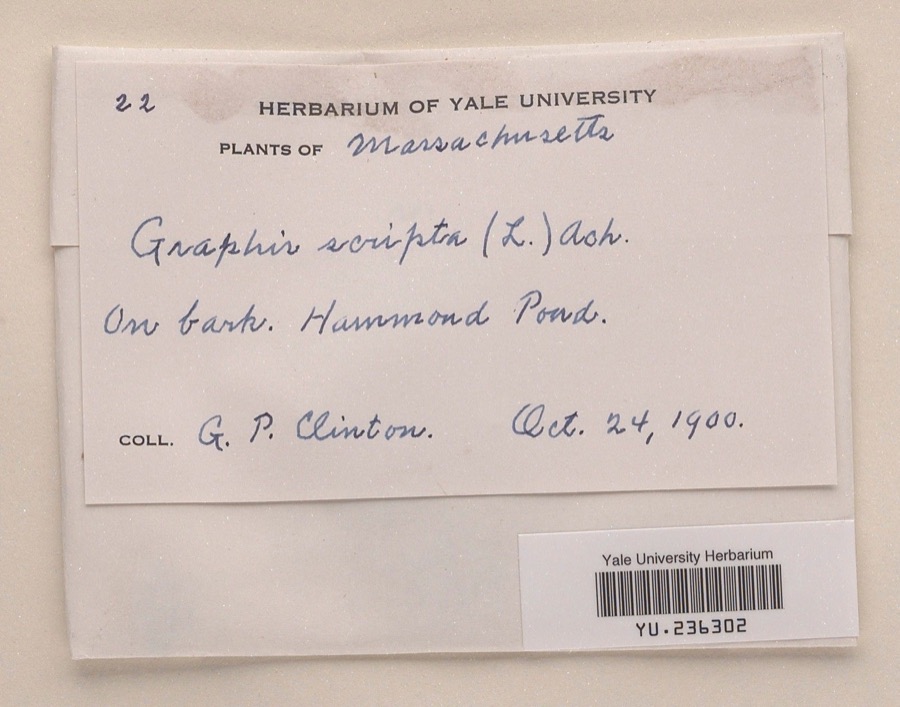 22
HERBARIUM OF YALE UNIVERSITY
PLANTS OF Massachusetts
Graphis scripta (L.) Ach.
On bark. Hammond Pond.
COLL. G. P. Clinton. Oct. 24, 1900.
Yale University Herbarium
YU.236302